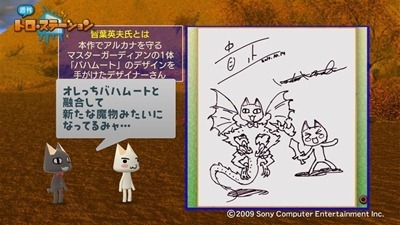 週刊
トロ・ステーション
皆葉英夫氏とは
本作でアルカナを守る
マスターガーディアンの1体
「バハムート」のデザインを
手がけたデザイナーさん
オレっちバハムートと
融合して
新たな魔物みたいに
なってるみャ…
©2009 Sony Computer Entertainment Inc.